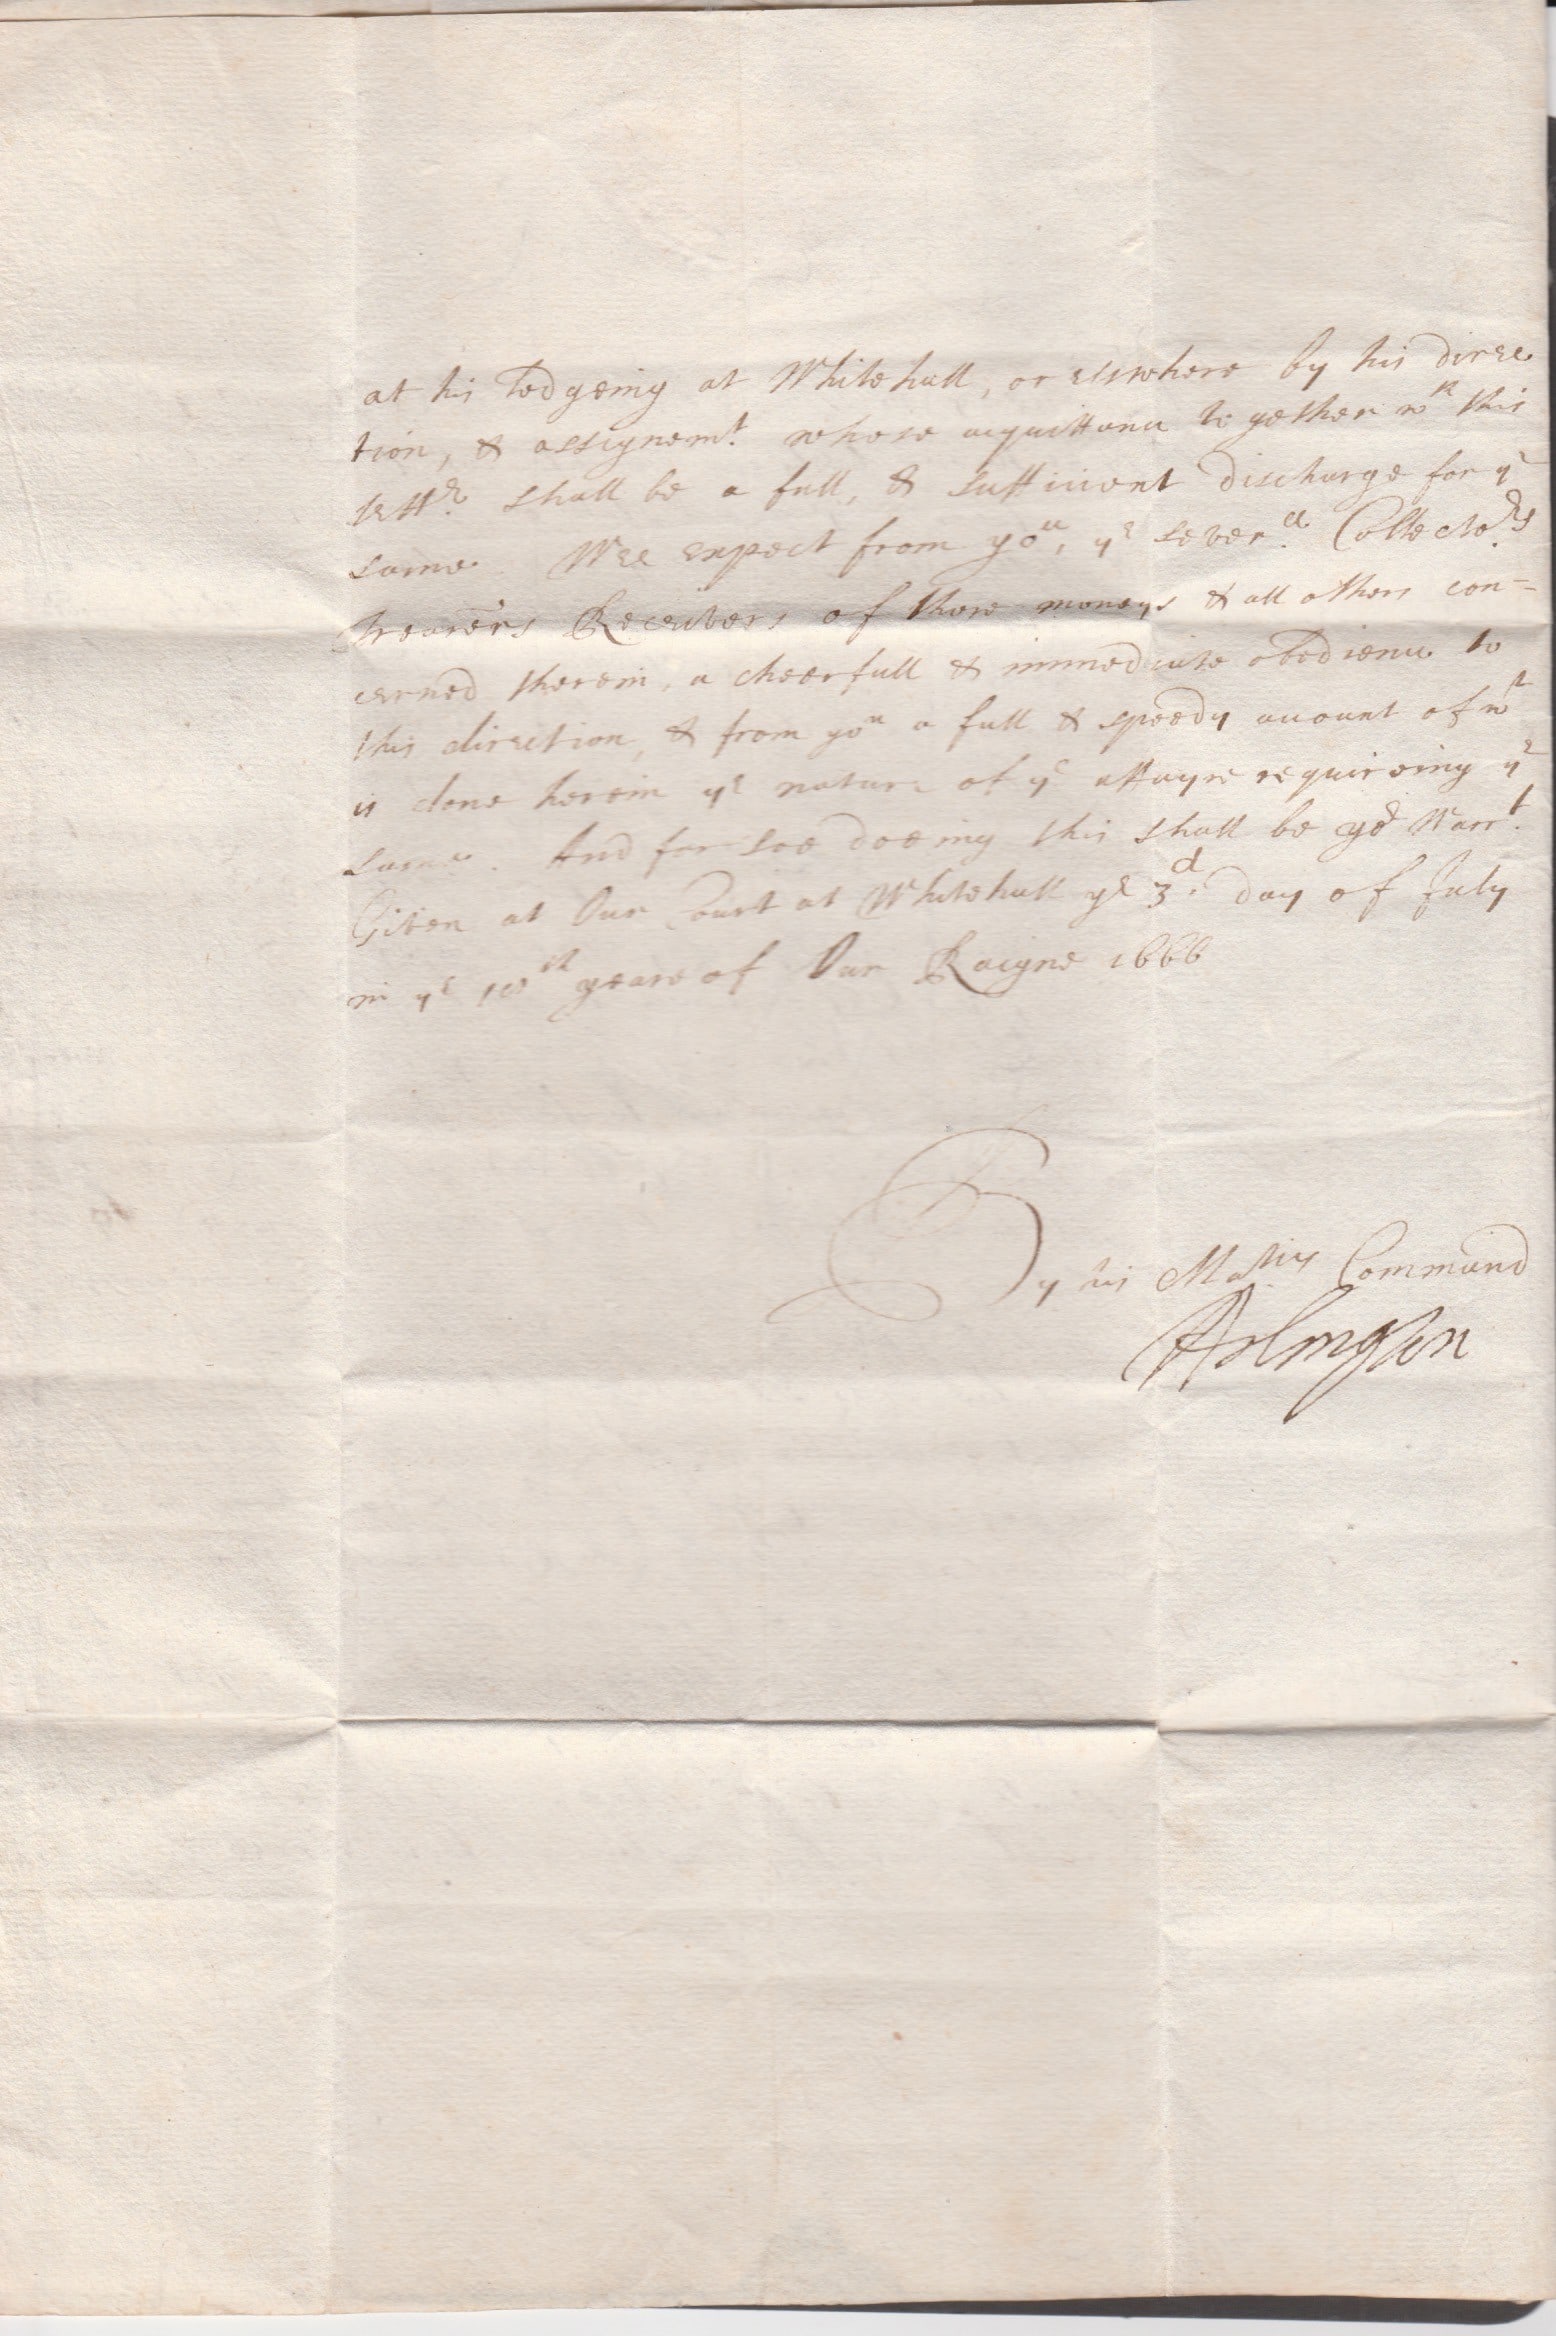 at his Lodgeing at Whitehall, or elswhere by his direc
tion, & assignemt. whose acquittance together wth this
lettr. shall be a full, & sufficient discharge for ye
same. Wee expect from you, ye severll. Collectors
trearers Receivers of those moneys & all others con-
cerned therein, a cheerfull & immediate obedience to
this direction, & from you a full & speedy account of wt
is done herein ye nature of ye affayre requireing ye
same. And for soe doeing this shall be yor Warrt.
Given at Our Court at Whitehall ye 3d. day of July
in ye 18th yeare of Our Raigne 1666
By his Maties Command
Arlington